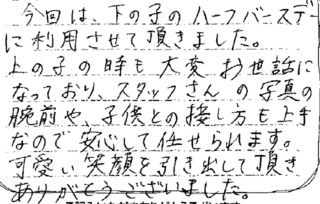 今回は、下の子のハーフバースデー
に利用させて頂きました。
上の子の時も大変お世話に
なっており、スタッフさんの写真の
腕前や、子供との接し方も上手
なので安心して任せられます。
可愛い笑顔を引き出して頂き
ありがとうございました。